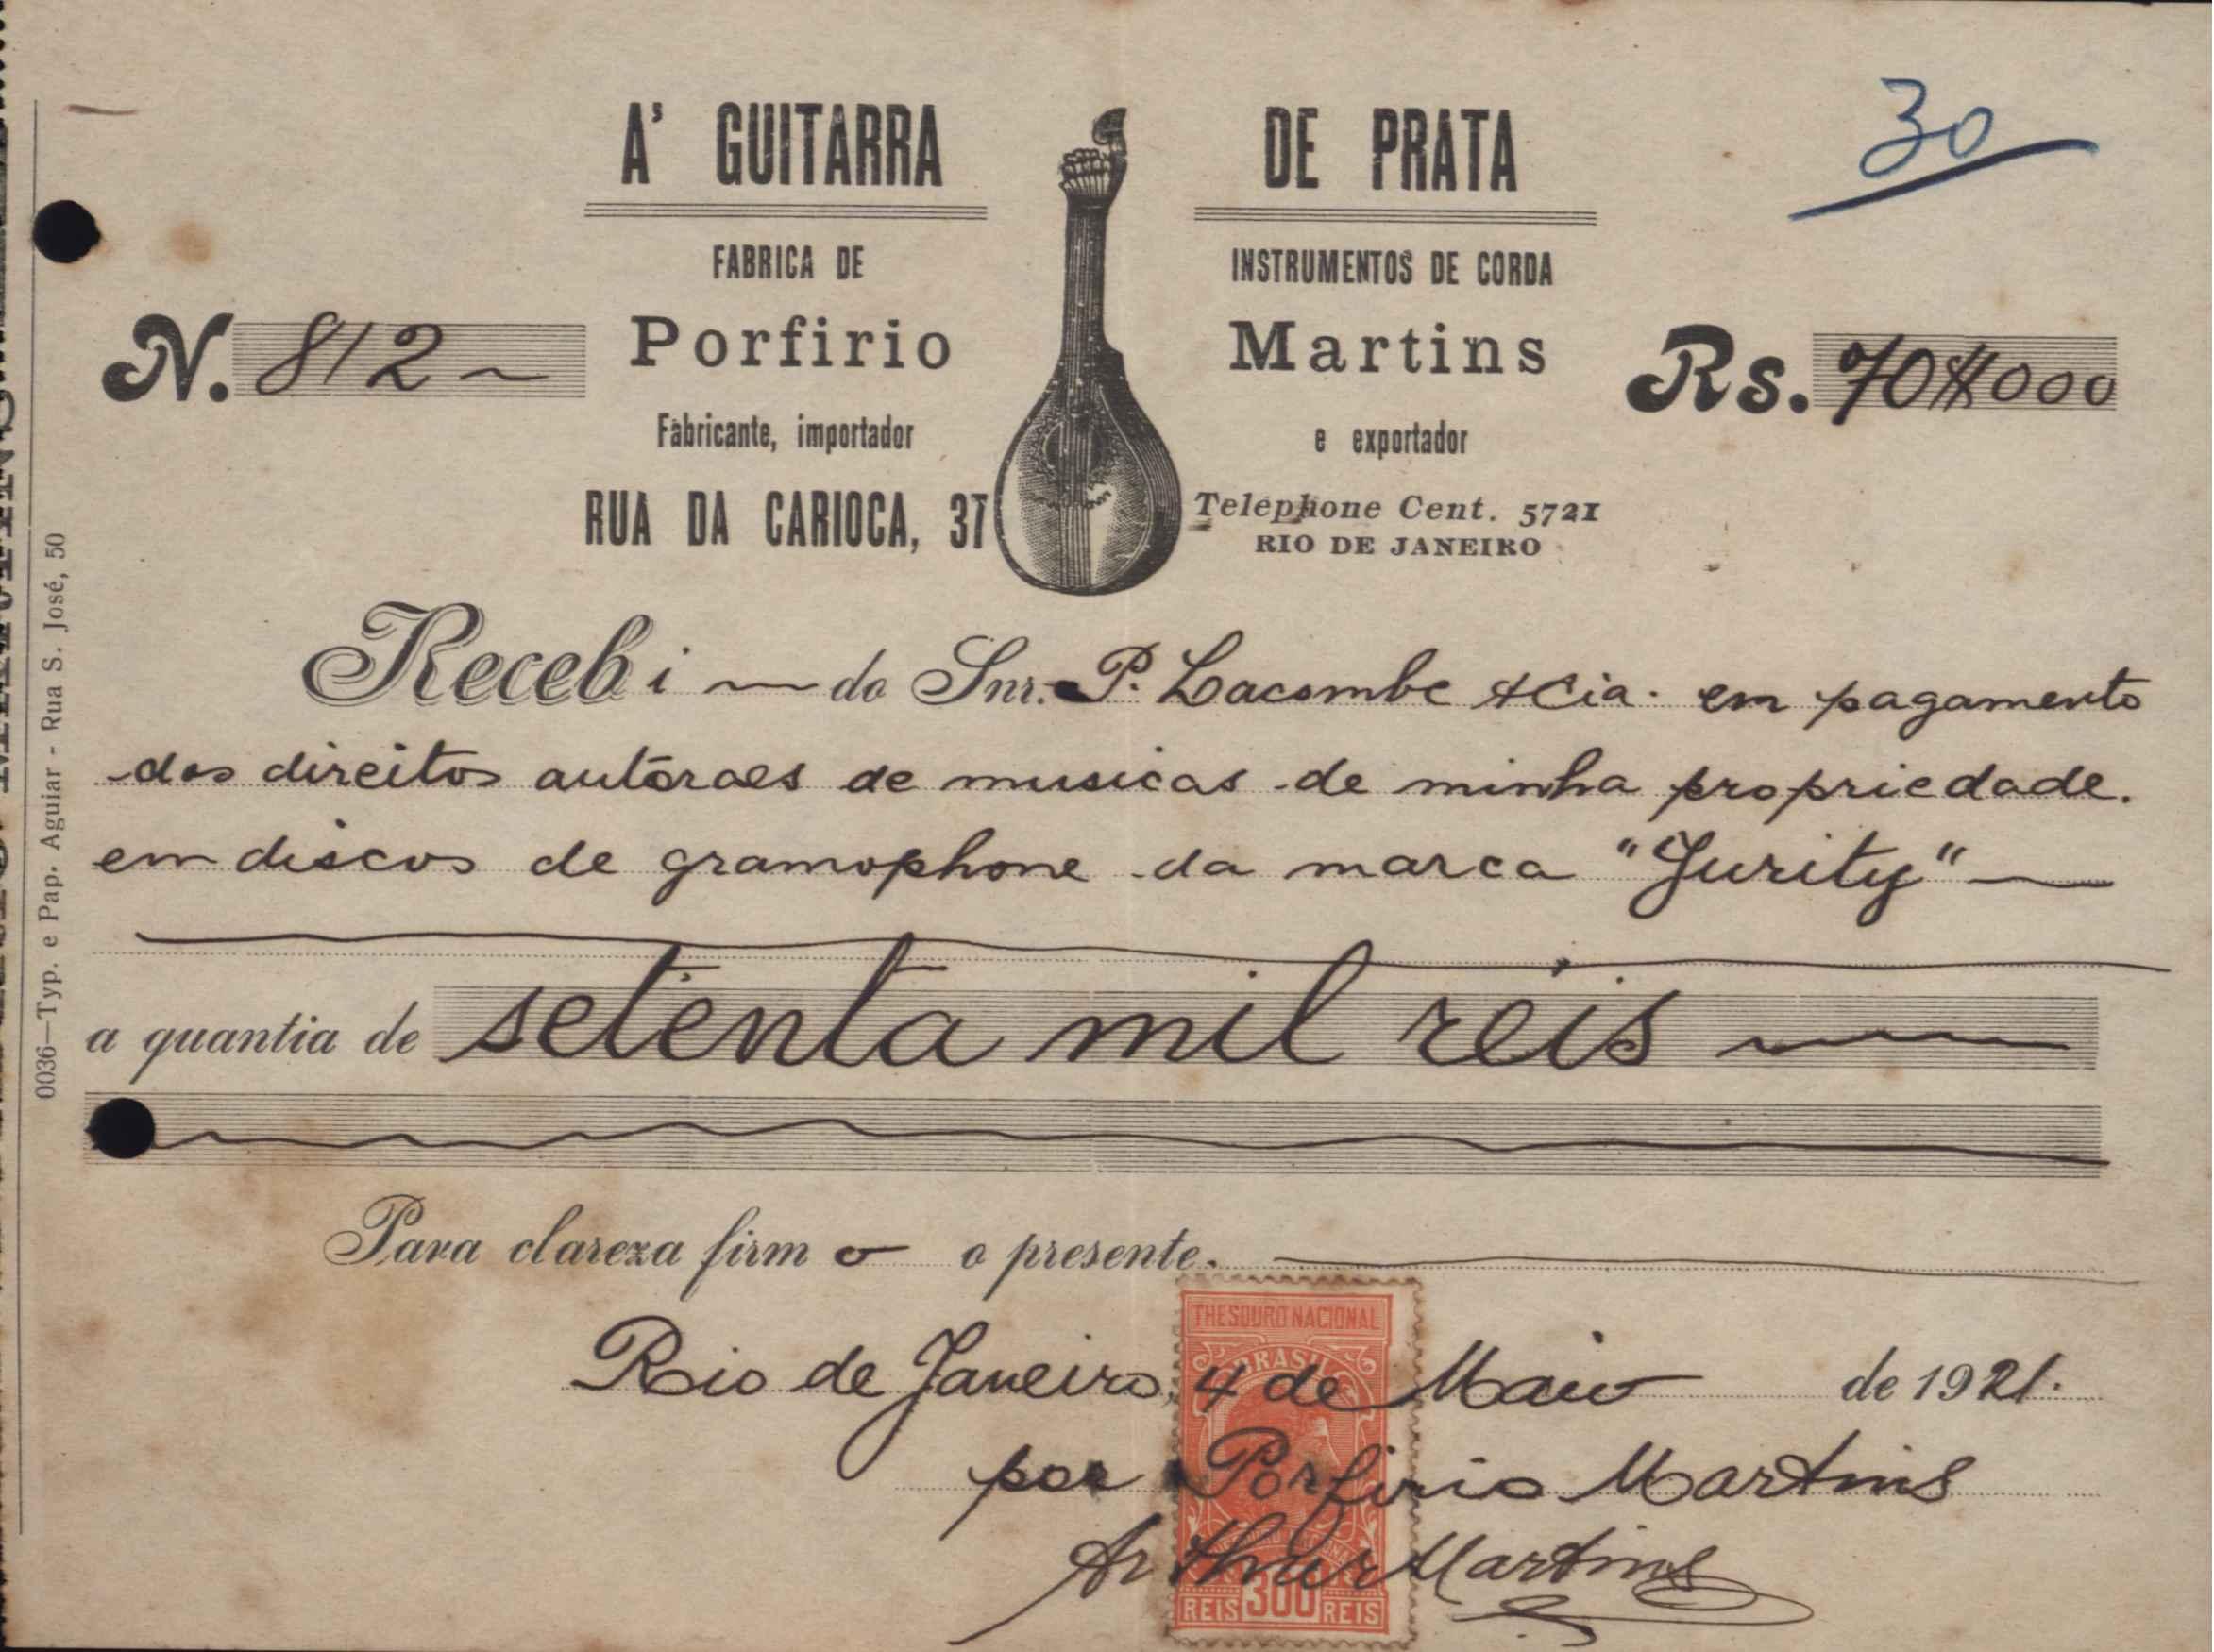 30
A' GUITARRA DE PRATA
FABRICA DE INSTRUMENTOS DE CORDA
N. 812 Porfirio Martins Rs. 70$000
Fabricante, importador e exportador
RUA DA CARIOCA, 37 Telephone Cent. 5721
RIO DE JANEIRO
Recebi do Snr. P. Lacombe & Cia. em pagamento
dos direitos autóraes de musicas de minha propriedade.
em discos de gramophone da marca "Jurity"
a quantia de setenta mil réis
Para clareza firmo o presente.
THESOURO NACIONAL
BRASIL
Rio de Janeiro, 4 de Maio de 1921.
por Porfirio Martins
Arthur Martins
REIS 300 REIS
0036—Typ. e Pap. Aguiar - Rua S. José, 50